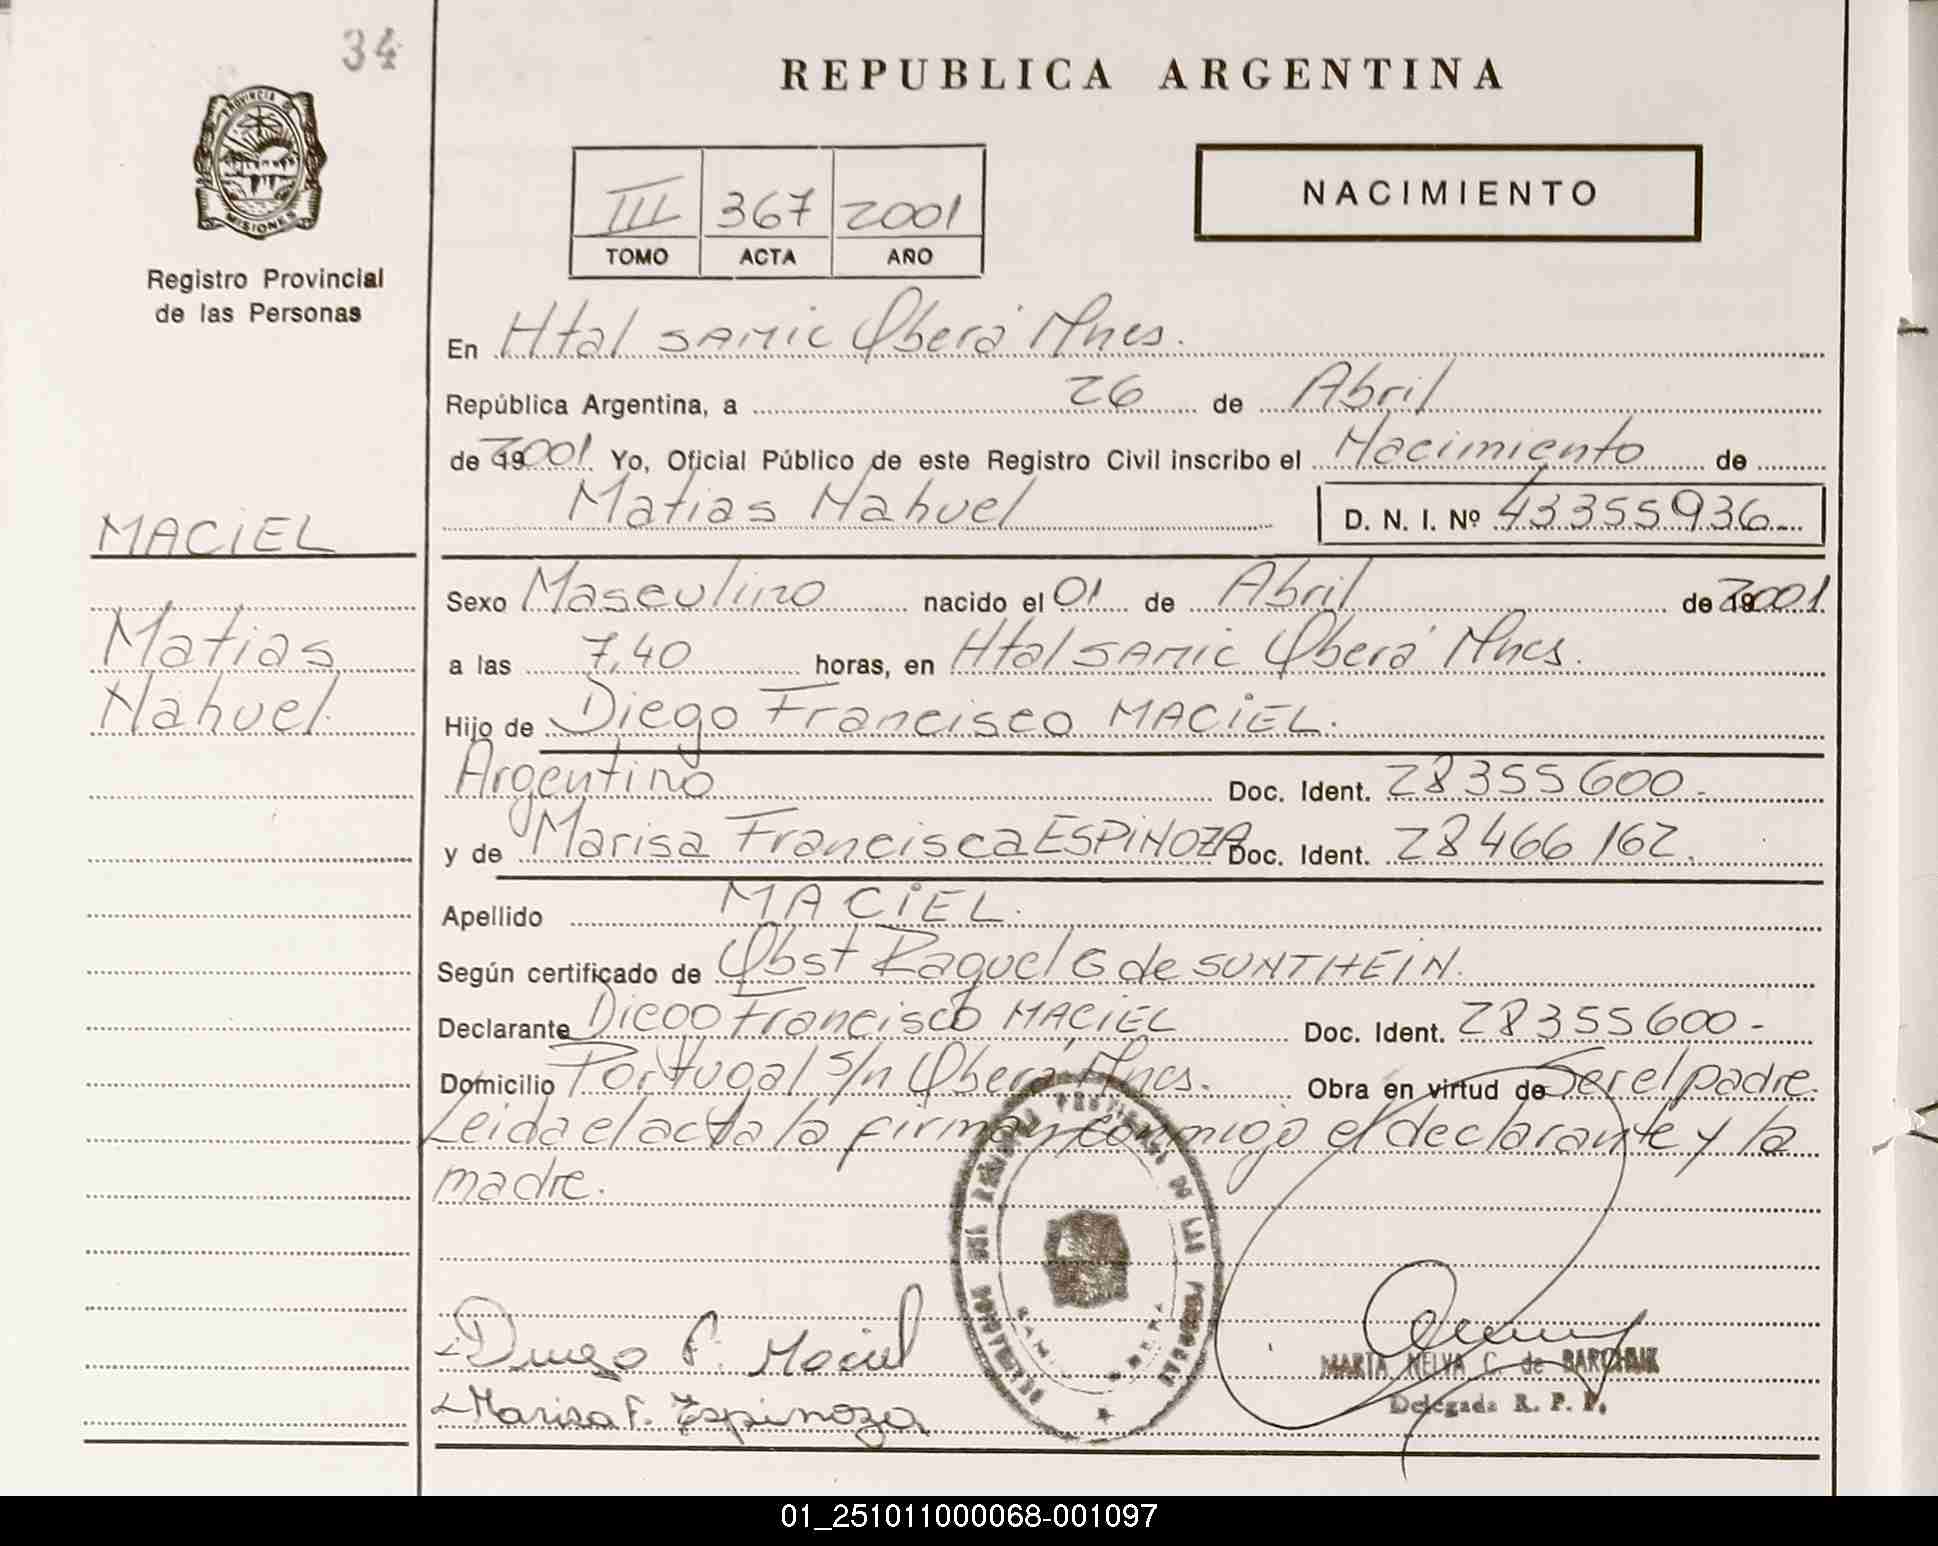 34
REPUBLICA ARGENTINA
PROVINCIA D MISIONES
Registro Provincial
de las Personas
III 367 2001
TOMO ACTA AÑO
NACIMIENTO
En Htal SAMIC Oberá Mnes.
República Argentina, a 26 de Abril
de 2001 Yo, Oficial Público de este Registro Civil inscribo el Nacimiento de
Matias Nahuel D. N. I. Nº 43355936
MACIEL
Matias
Nahuel
Sexo Masculino nacido el 01 de Abril de 2001
a las 7,40 horas, en Htal SAMIC Oberá Mnes.
Hijo de Diego Francisco MACIEL.
Argentino Doc. Ident. 28355600-
y de Marisa Francisca ESPINOZA Doc. Ident. 28466162.
Apellido MACIEL.
Según certificado de Obst Raquel G de SUNTHEIN.
Declarante Diego Francisco MACIEL Doc. Ident. 28355600-
Domicilio Portugal s/n Oberá Mnes. Obra en virtud de Ser el padre.
Leida el acta la firman conmigo el declarante y la
madre.
DELEGACION DEL REGISTRO PROVINCIAL DE LAS PERSONAS
Diego F. Maciel
Marisa F. Espinoza
MARTA NELVA C. de BARCHUK
Delegada R. P. P.
01_251011000068-001097